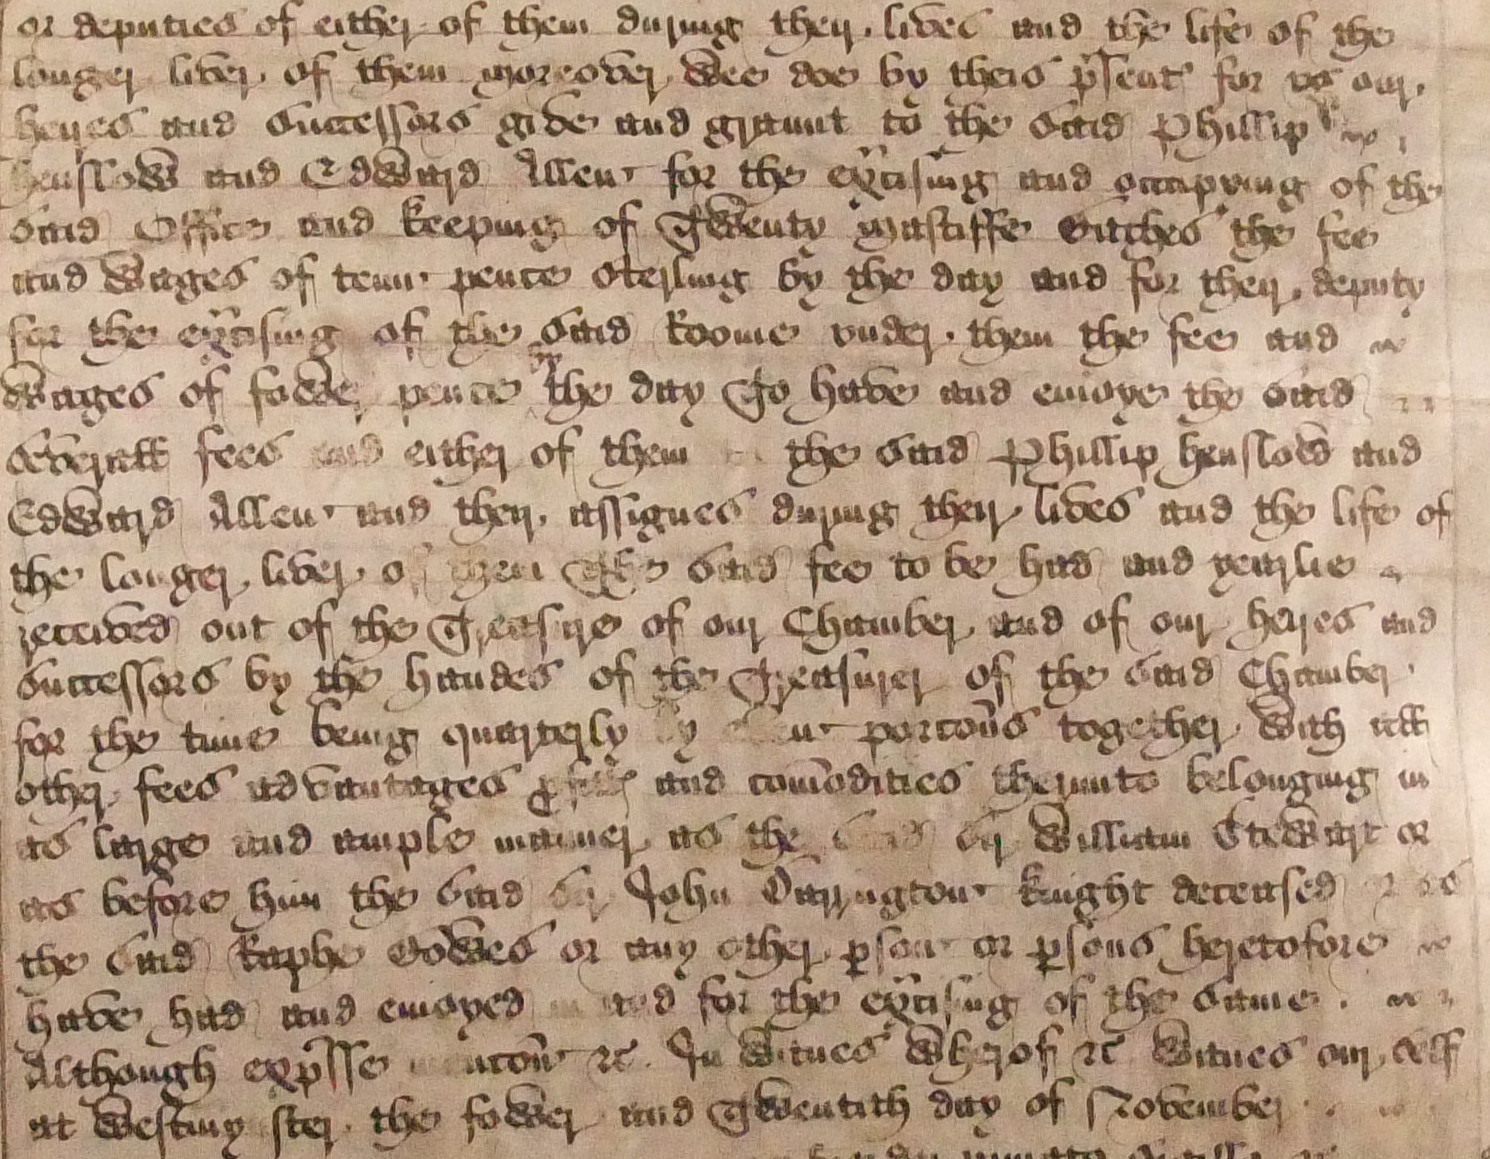 or deputies of either of them during their lives and the life of the
longer liver of them moreover wee doe by theis p'sent for vs our
heires and Successors give and graunt to the said Phillip
henslow and Edward Allen for the ex'cising and occupying of the
said Office and keeping of Twenty mastiffe bitches the fee
and wages of tenn pence sterling by the day and for their deputy
for the ex'cising of the said Roome vnder them the fee and
wages of fower pence by the day To have and enioye the said
severall fees and either of them the said Phillip henslow and
Edward Allen and their assignes during their lives and the life of
the longer liver of them The said fee to be had and yearlie
received out of the Treasure of our Chamber and of our heires and
successors by the handes of the Treasurer of the said Chamber
for the time being quarterly by even porcons together with all
other fees advantages p'fitts and comodities therunto belonging in
as large and ample manner as the said Sir William Steward or
as before him the said Sir John Darrington knight deceased or as
the said Raphe Bowes or any other p'son or p'sons heretofore
have had and enioyed in and for the ex'cising of the same
Although exp'sse mencon &c In witnes wherof &c witnes our self
at westmynster the fower and Twentith day of November